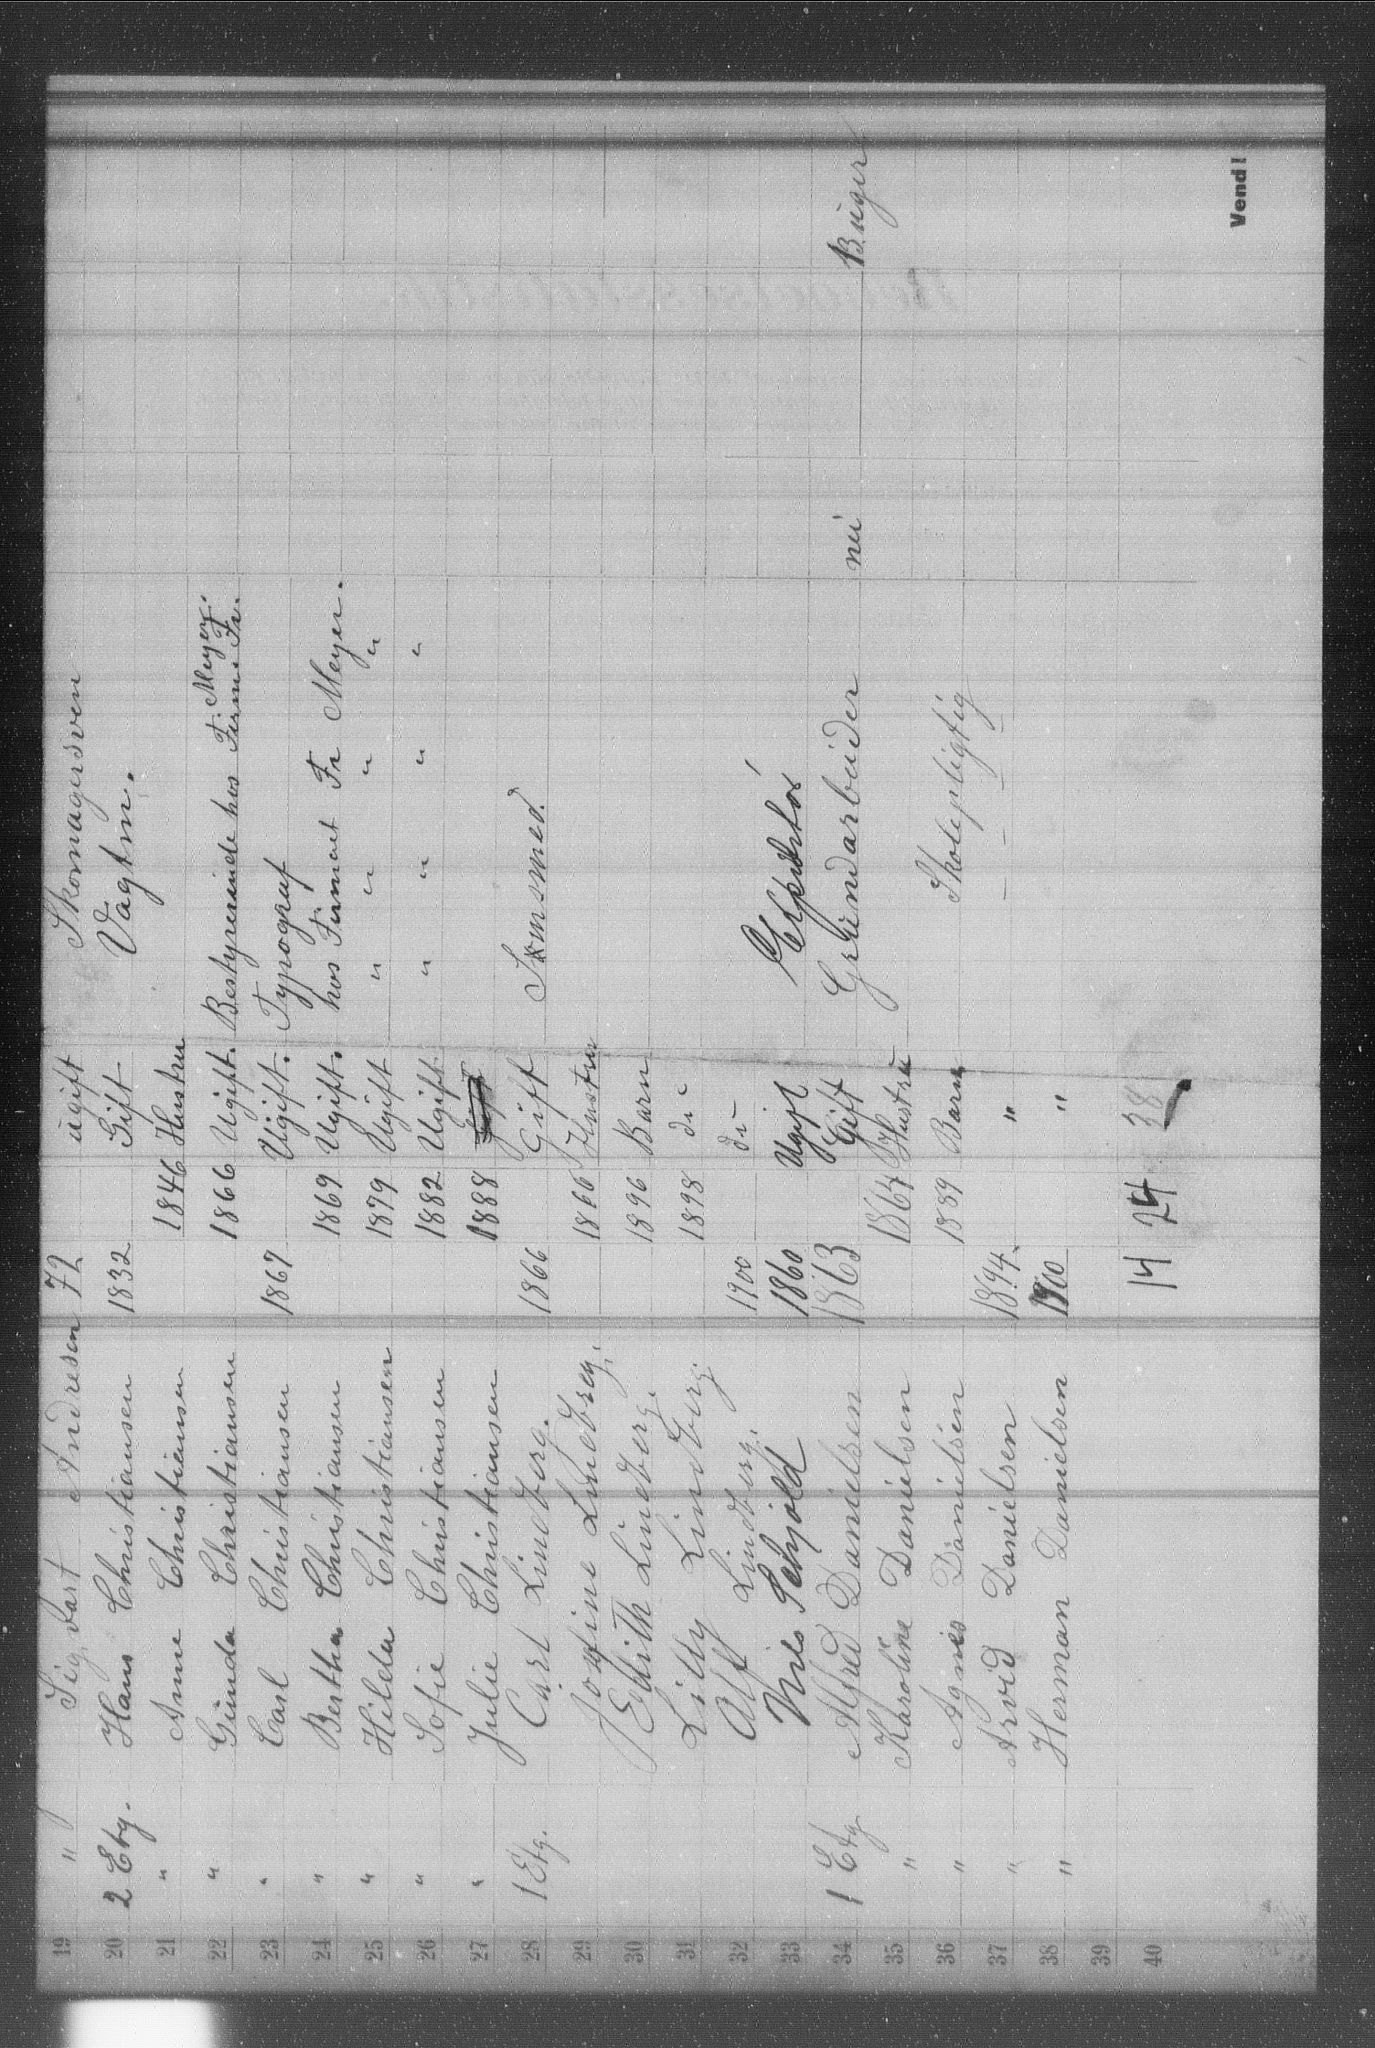 19 " Sig. Fast Andresen 72 ugift Skomagersven
20 2 Etg. Hans Christiansen 1832 Gift Vagtm.
21 " Anne Christiansen 1846 Hustru
22 " Gunda Christiansen 1866 Ugift. Bestyrerinde hos Firma Fr. Meyer.
23 " Carl Christiansen 1867 Ugift. Typograf
24 " Bertha Christiansen 1869 Ugift. hos Firmaet Fr Meyer.
25 " Hilda Christiansen 1879 Ugift " " " "
26 " Sofie Christiansen 1882 Ugift " " " "
27 " Julie Christiansen 1888
28 1 Etg. Carl Lindberg. 1866 Gift Sømsmed.
29 Josefine Lindberg. 1866 Hustru
30 Edith Lindberg. 1896 Barn
31 Lilly Lindberg. 1898 do
32 Alf Lindberg. 1900 do
33 Nils Schjöld 1860 Ugift
34 1 Etg Alfred Danielsen 1863 Gift Grundarbeider nei Buger
35 " Karoline Danielsen 1864 Hustru
36 " Agnes Danielsen 1889 Barn Skolepligtig
37 " Arvid Danielsen 1894. " — — —
38 " Herman Danielsen 1900 "
39
40 14 24 38
Vend!